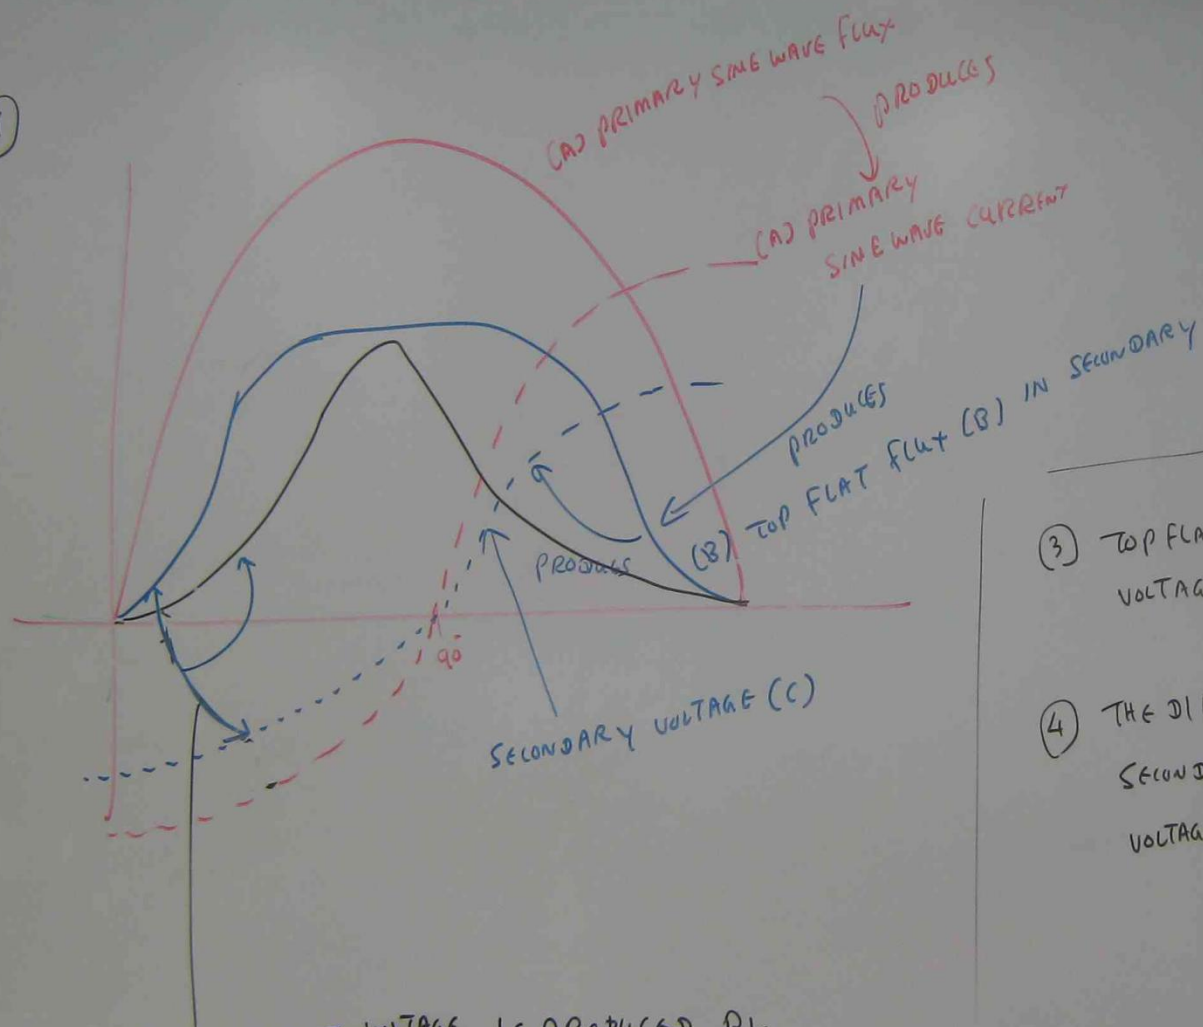 (A) PRIMARY SINE WAVE FLUX
PRODUCES
(A) PRIMARY
SINE WAVE CURRENT
PRODUCES
(B) TOP FLAT FLUX (B) IN SECONDARY
PRODUCES
90
SECONDARY VOLTAGE (C)
(3) TOP FLA
VOLTAG
(4) THE DI
SECOND
VOLTAG
VOLTAGE IS PRODUCED